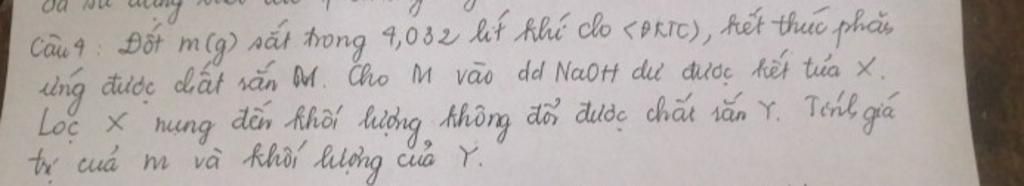 Câu 4: Đốt m(g) sắt trong 4,032 lít khí clo <ĐKTC), kết thúc phản
ứng được chất rắn M. Cho M vào dd NaOH dư được kết tủa X.
Lọc X nung đến khối lượng không đổi được chất rắn Y. Tính giá
trị của m và khối lượng của Y.